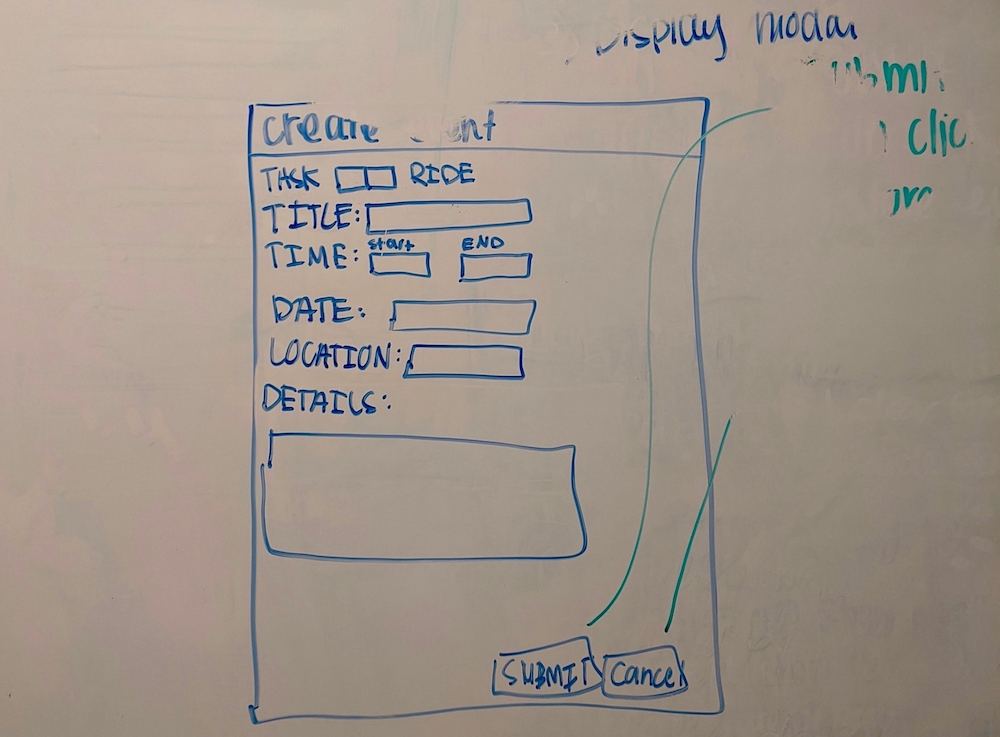 Display modal
clic
create
TASK RIDE
TITLE:
TIME: start END
DATE:
LOCATION:
DETAILS:
SUBMIT Cancel